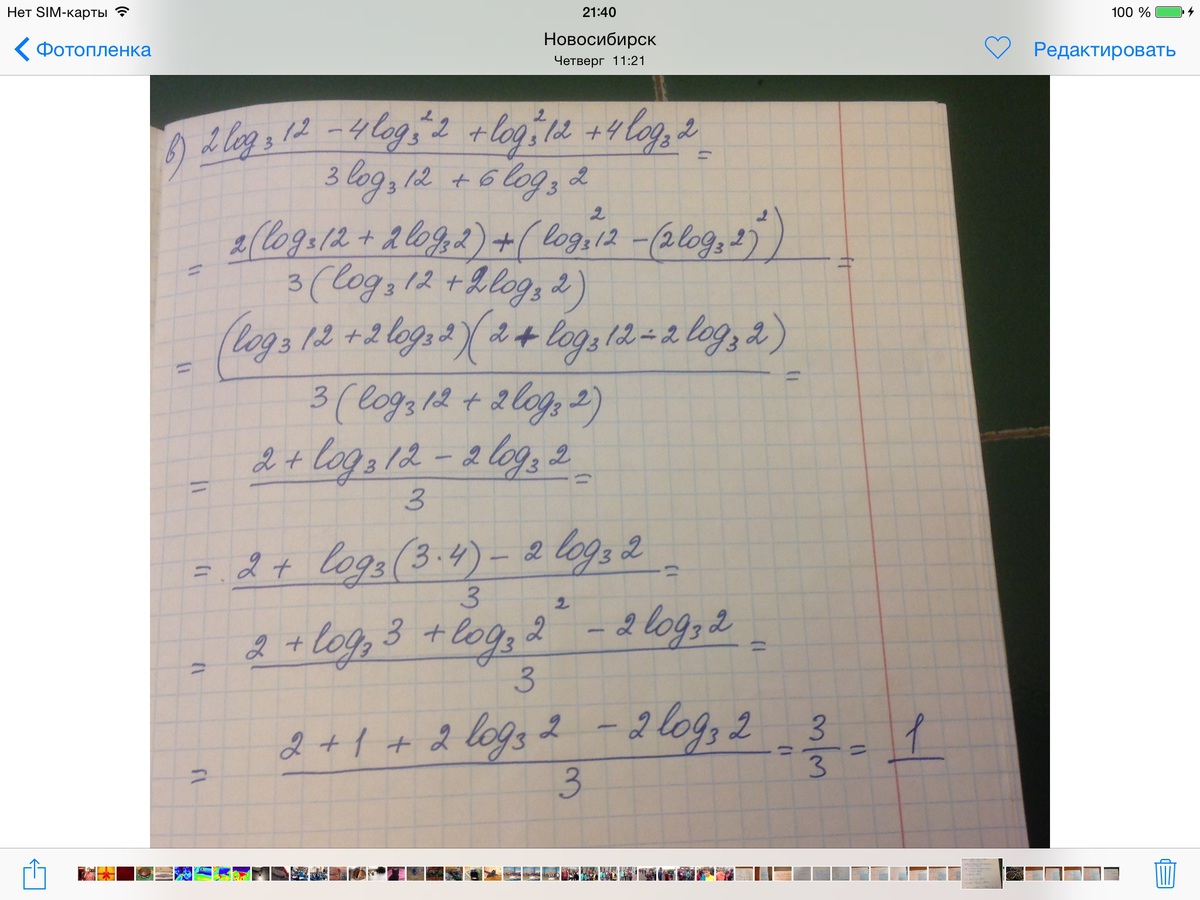 Нет SIM-карты 21:40 100 %
Фотопленка Новосибирск Редактировать
Четверг 11:21
в) (2log₃12 − 4log₃²2 + log₃²12 + 4log₃2) / (3log₃12 + 6log₃2) =
= (2(log₃12 + 2log₃2) + (log₃²12 − (2log₃2)²)) / (3(log₃12 + 2log₃2)) =
= ((log₃12 + 2log₃2)(2 + log₃12 − 2log₃2)) / (3(log₃12 + 2log₃2)) =
= (2 + log₃12 − 2log₃2) / 3 =
= (2 + log₃(3·4) − 2log₃2) / 3 =
= (2 + log₃3 + log₃2² − 2log₃2) / 3 =
= (2 + 1 + 2log₃2 − 2log₃2) / 3 = 3/3 = 1